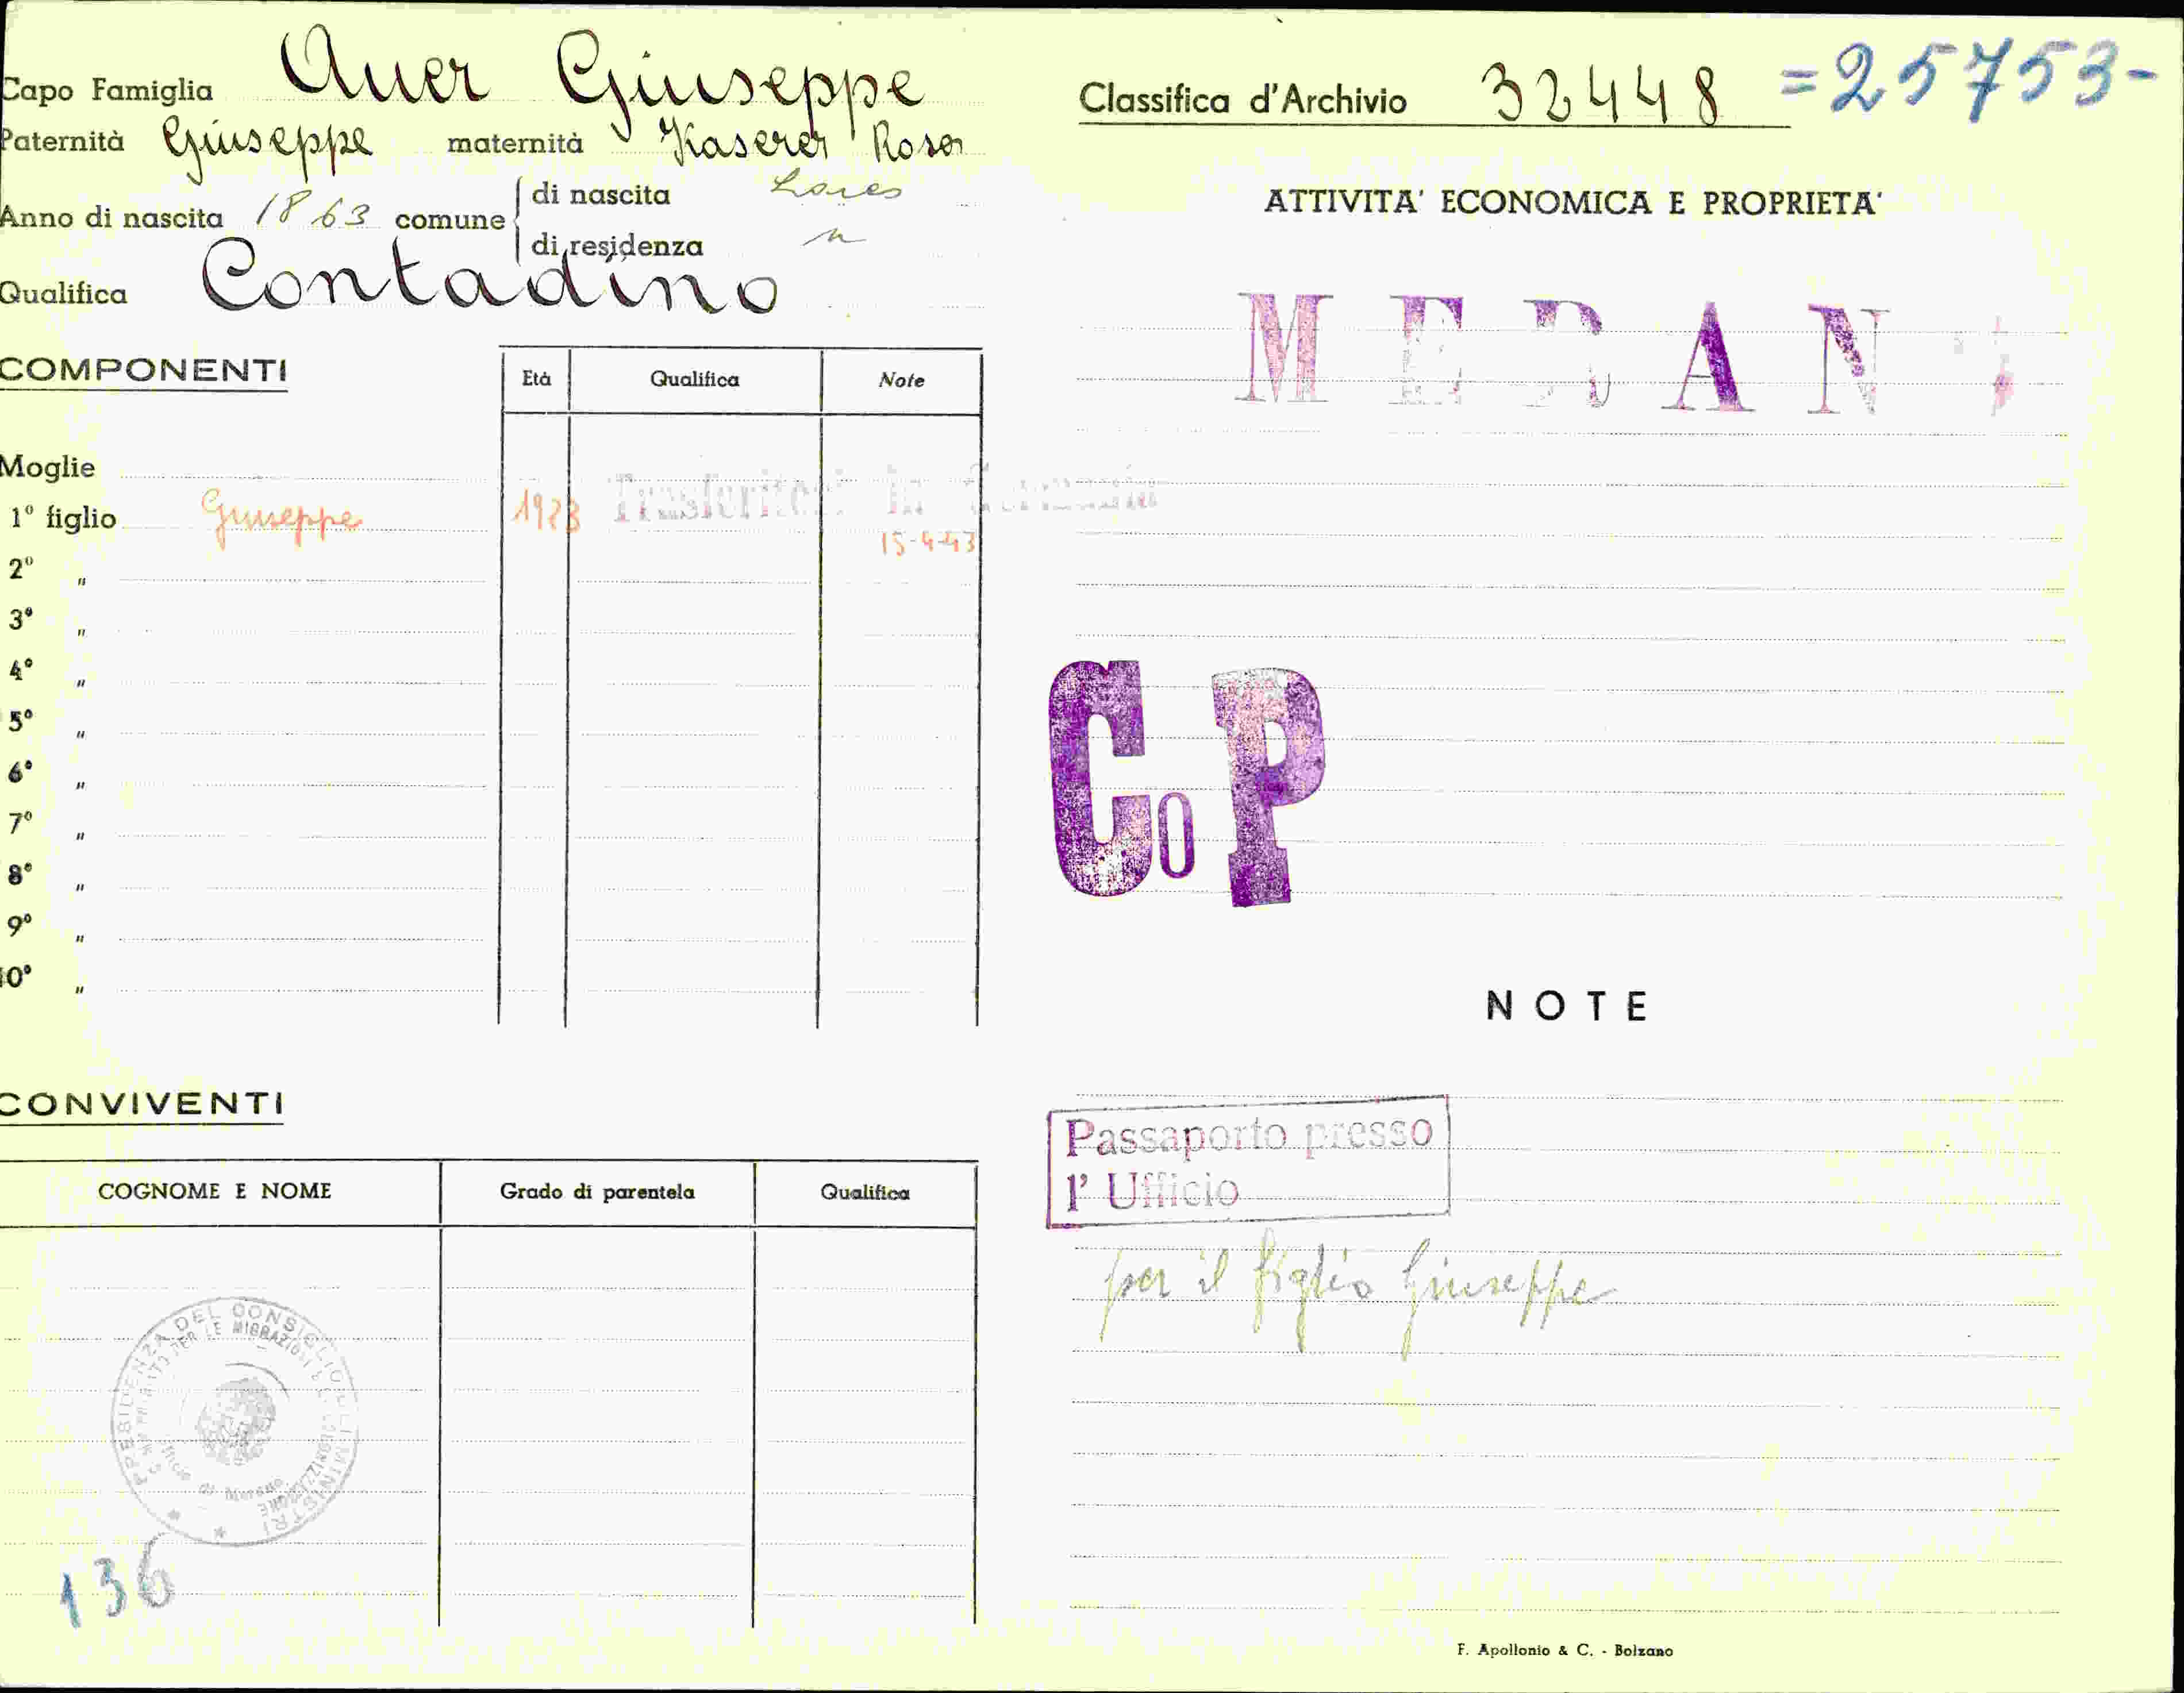 Capo Famiglia Auer Giuseppe
Paternità Giuseppe maternità Kaserer Rosa
Anno di nascita 1863 comune di nascita Lores
di residenza
Qualifica Contadino
COMPONENTI
Età Qualifica Note
Moglie
1º figlio Giuseppe 1923 Trasferitosi in Germania
15-4-43
2º "
3º "
4º "
5º "
6º "
7º "
8º "
9º "
10º "
CONVIVENTI
COGNOME E NOME Grado di parentela Qualifica
PRESIDENZA DEL CONSIGLIO DEI MINISTRI
PER LE MIGRAZIONI E LA COLONIZZAZIONE
di Merano
136
Classifica d'Archivio 32448 =25753-
ATTIVITA' ECONOMICA E PROPRIETA'
MERAN
CoP
NOTE
Passaporto presso
l' Ufficio
per il figlio Giuseppe
F. Apollonio & C. - Bolzano